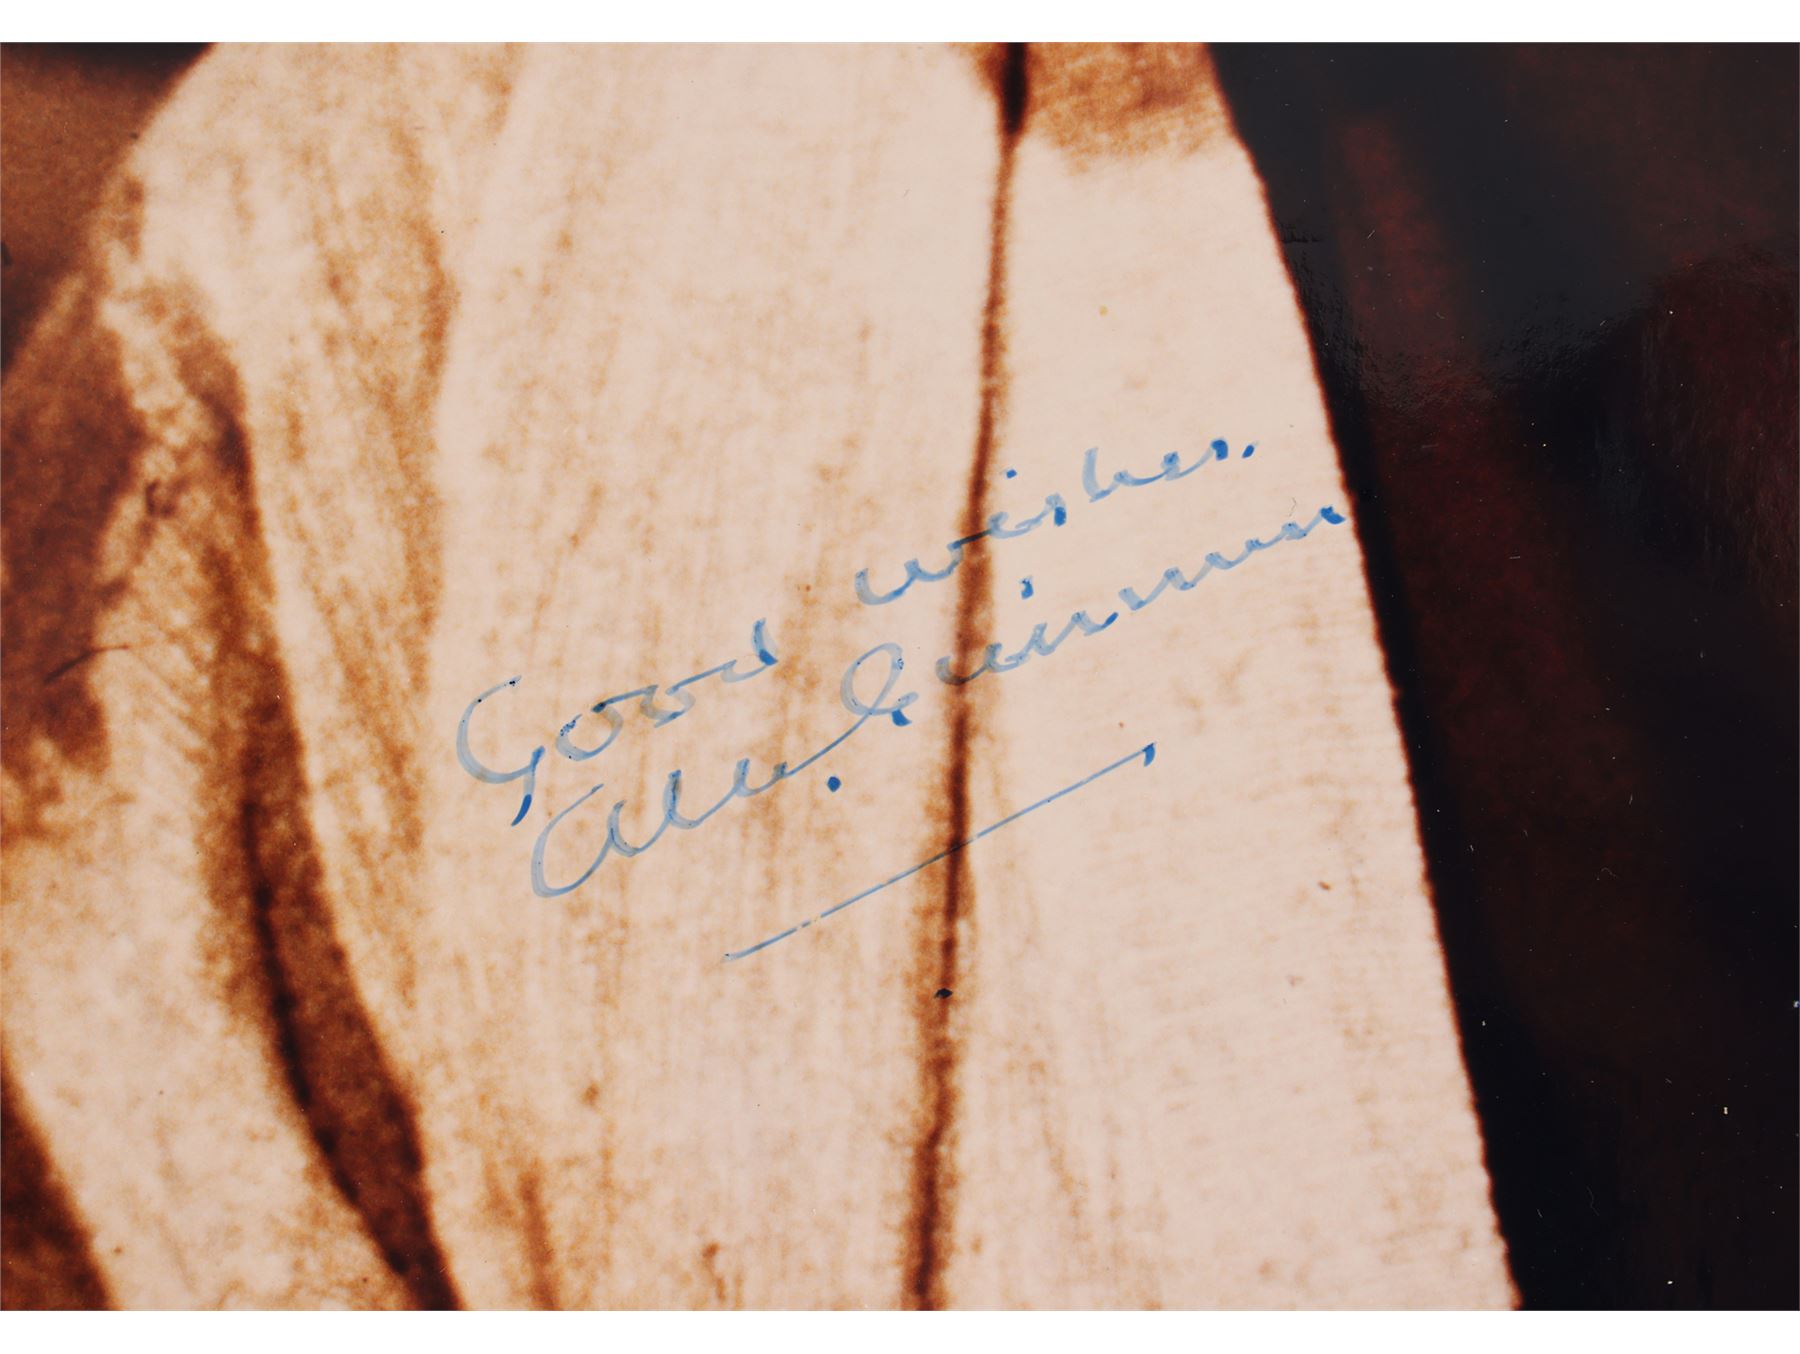 Good wishes.
Alec Guinness